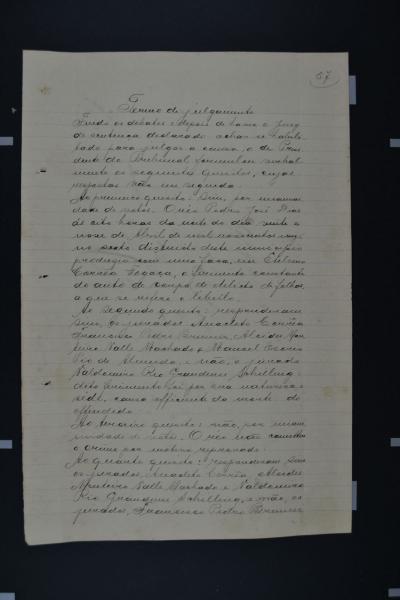 57
Termo de julgamento
Findo os debates e depois de haver o Jury
de sentença declarado achar-se habili-
tado para julgar a causa, o dr. Presi-
dente do Tribunal formulou verbal-
mente os seguintes quesitos, cujas
respostas vão em seguida.
Ao primeiro quesito: Sim, por unanimi-
dade de votos. O réo Pedro José Dias
ás oito horas da noite do dia vinte e
nove de Abril de mil novecentos
no sexto districto deste municipio
produziu com uma faca, em
Corrêa o ferimento constante
do auto de corpo de delicto de folhas,
a que se refere o libello.
Ao segundo quesito: responderam
sim, os jurados: Anacleto Corrêa
Francisco Pedro Alcides Mon-
teiro Valle Machado e Manoel
Pio de Almeida, e não, o jurado
Valdomiro Rio Grandense Schilling:
deste ferimento foi por sua natureza e
séde, causa efficiente da morte do
offendido.
Ao terceiro quesito: não, por unani-
midade de votos. O réo não commetteu
o crime por motivo reprovado.
Ao quarto quesito: responderam sim
os jurados, Anacleto Corrêa Alcides
Monteiro Valle Machado e Valdomiro
Rio Grandense Schilling, e não, os
jurados, Francisco Pedro